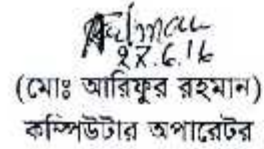 ২৪.6.16
(মোঃ আরিফুর রহমান)
কম্পিউটার অপারেটর